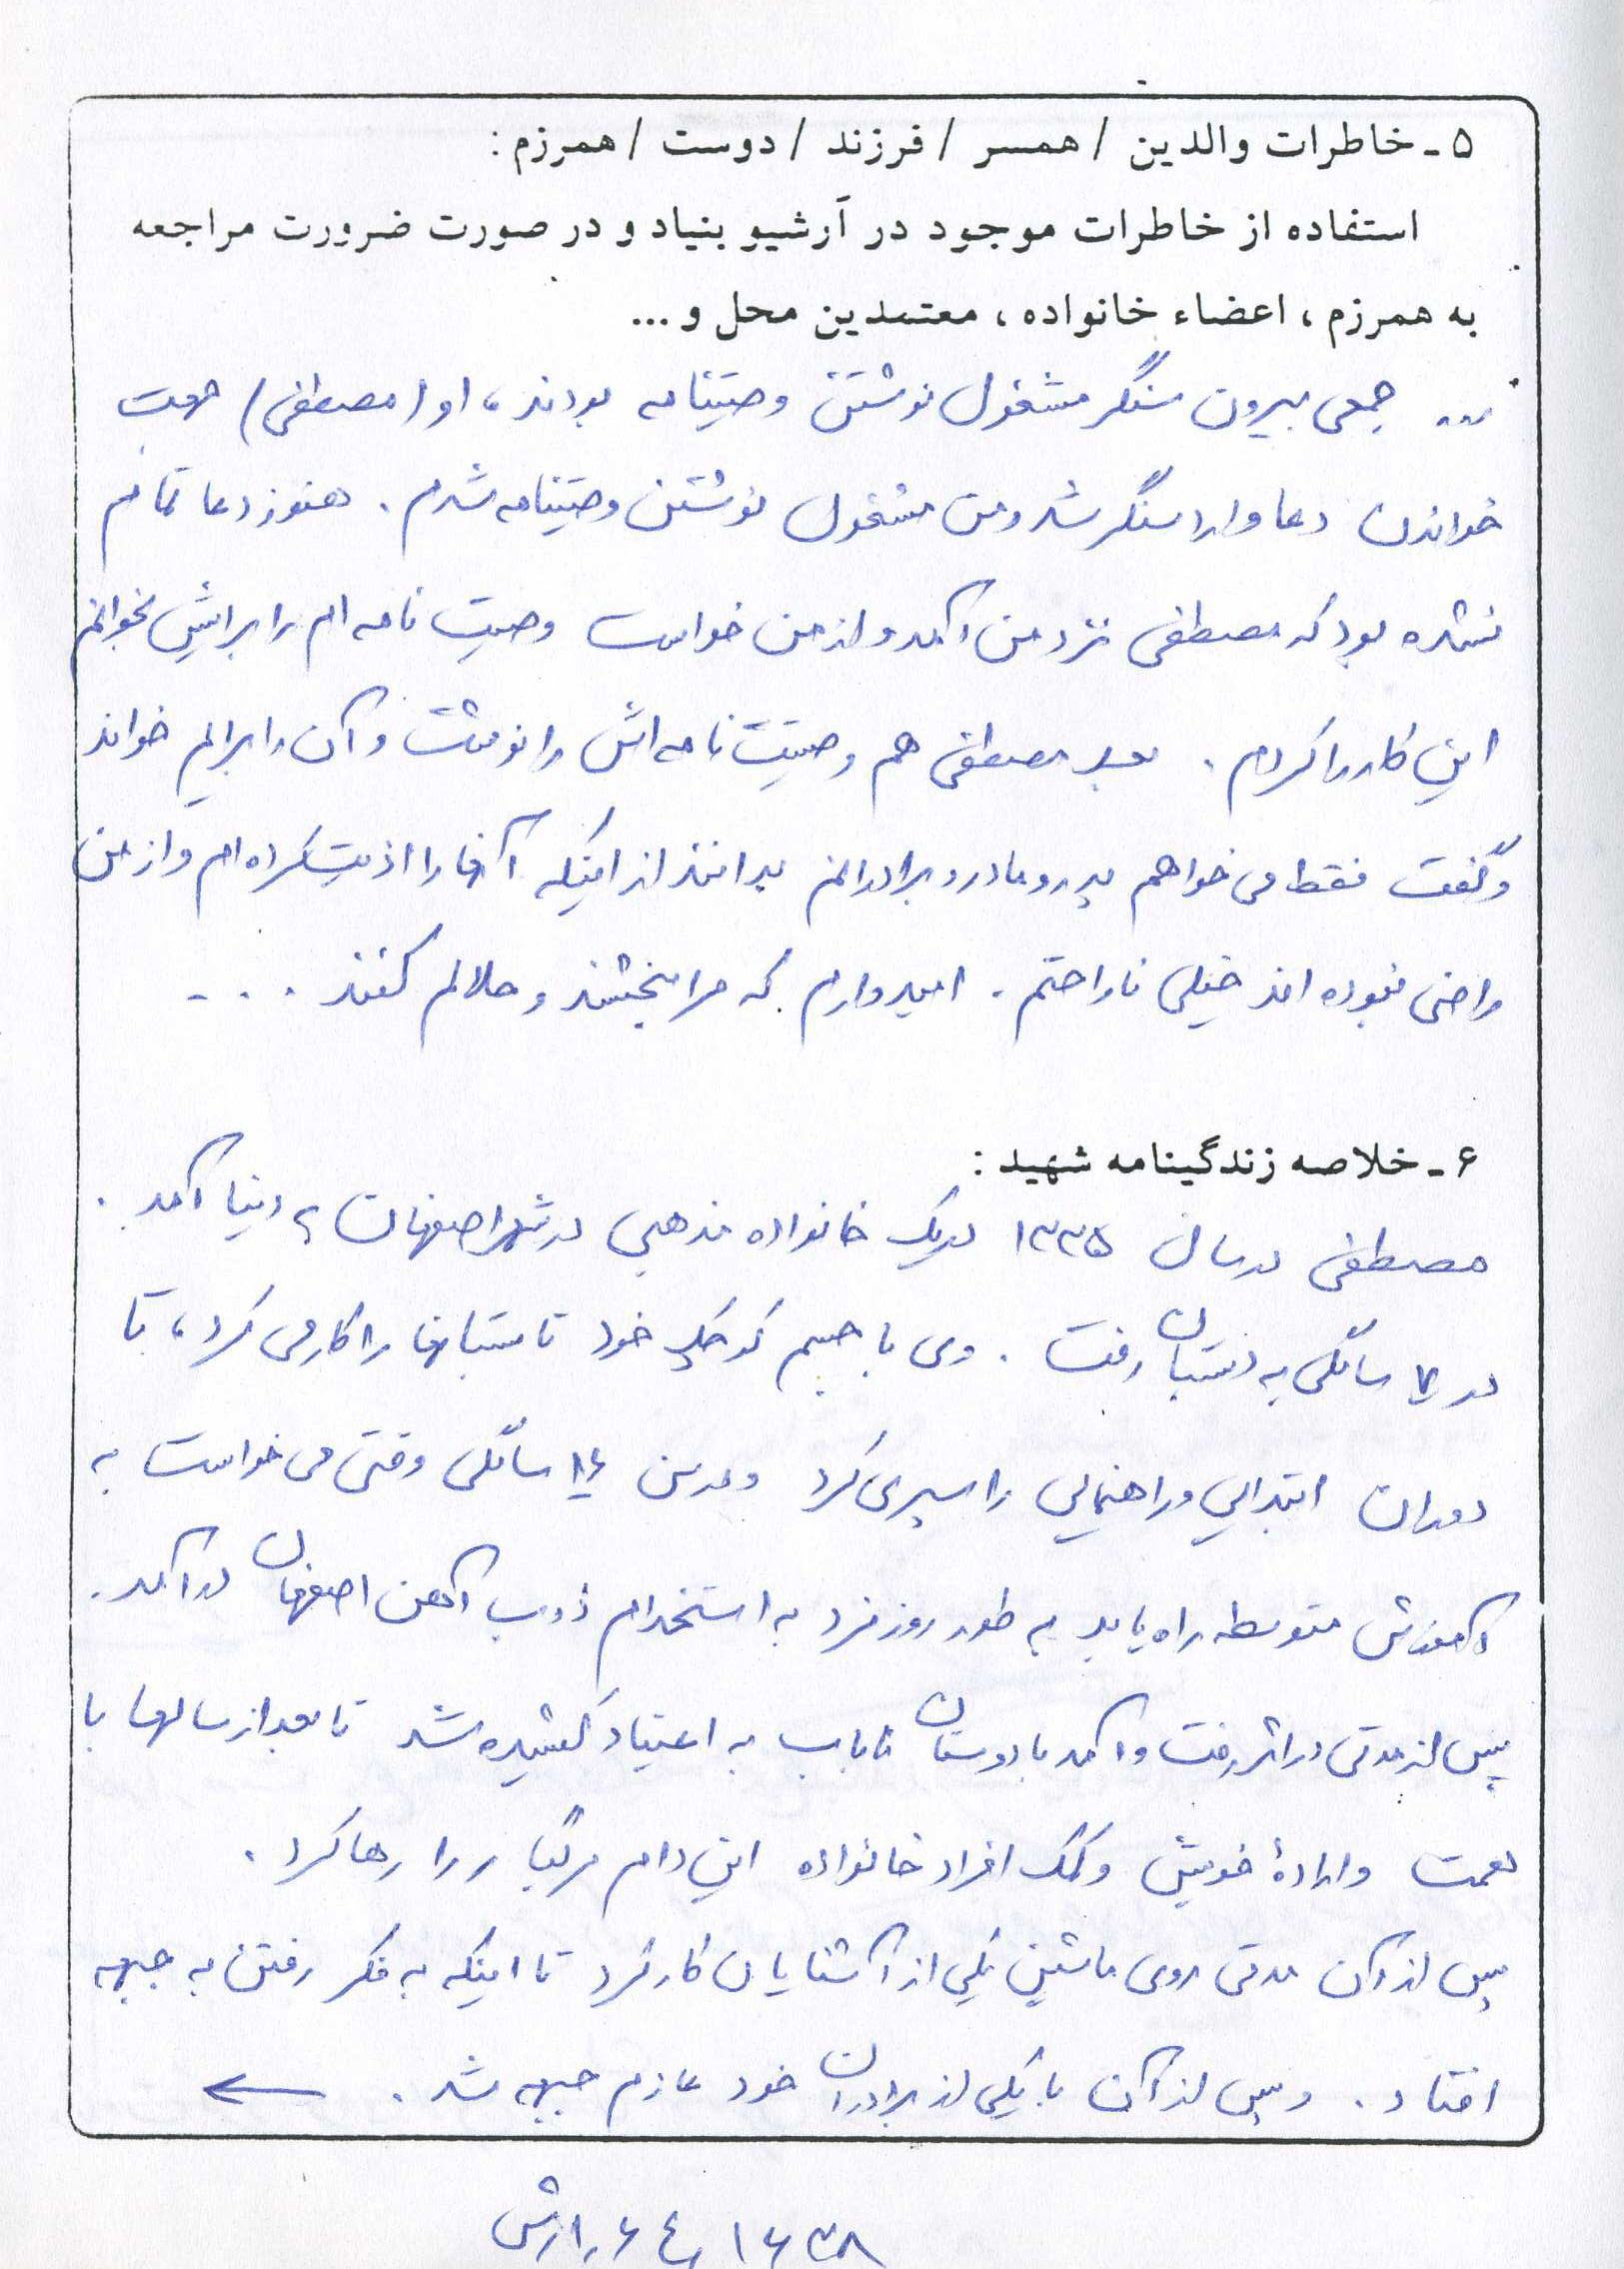 ۵ - خاطرات والدین / همسر / فرزند / دوست / همرزم :
استفاده از خاطرات موجود در آرشیو بنیاد و در صورت ضرورت مراجعه
به همرزم ، اعضاء خانواده ، معتمدین محل و ...
... جمعی بیرون سنگر مشغول نوشتن وصیتنامه بودند ، او (مصطفی) جهت
خواندن دعا وارد سنگر شد و من مشغول نوشتن وصیتنامه شدم . هنوز دعا تمام
نشده بود که مصطفی نزد من آمد و از من خواست وصیت نامه ام را برایش بخوانم
این کار را کردم . بعد مصطفی هم وصیت نامه اش را نوشت و آن را برایم خواند
و گفت فقط می خواهم پدر و مادر و برادرانم بدانند از اینکه آنها را اذیت کرده ام و از من
راضی نبوده اند خیلی ناراحتم . امیدوارم که مرا ببخشند و حلالم کنند ...
۶ - خلاصه زندگینامه شهید :
مصطفی در سال ۱۳۳۵ در یک خانواده مذهبی در شهر اصفهان به دنیا آمد .
در ۷ سالگی به دبستان رفت . وی با جسم کوچک خود تابستانها را کار می کرد ، تا
دوران ابتدایی و راهنمایی را سپری کرد و در سن ۱۶ سالگی وقتی می خواست به
آموزش متوسطه راه یابد به طور روزمزد به استخدام ذوب آهن اصفهان در آمد .
پس از مدتی در اثر رفت و آمد با دوستان ناباب به اعتیاد کشیده شد تا بعد از سالها با
همت و ارادهٔ خویش و کمک افراد خانواده این دام مرگبار را رها کرد .
پس از آن مدتی روی ماشین یکی از آشنایان کار کرد تا اینکه به فکر رفتن به جبهه
افتاد . و پس از آن با یکی از برادران خود عازم جبهه شد . ←